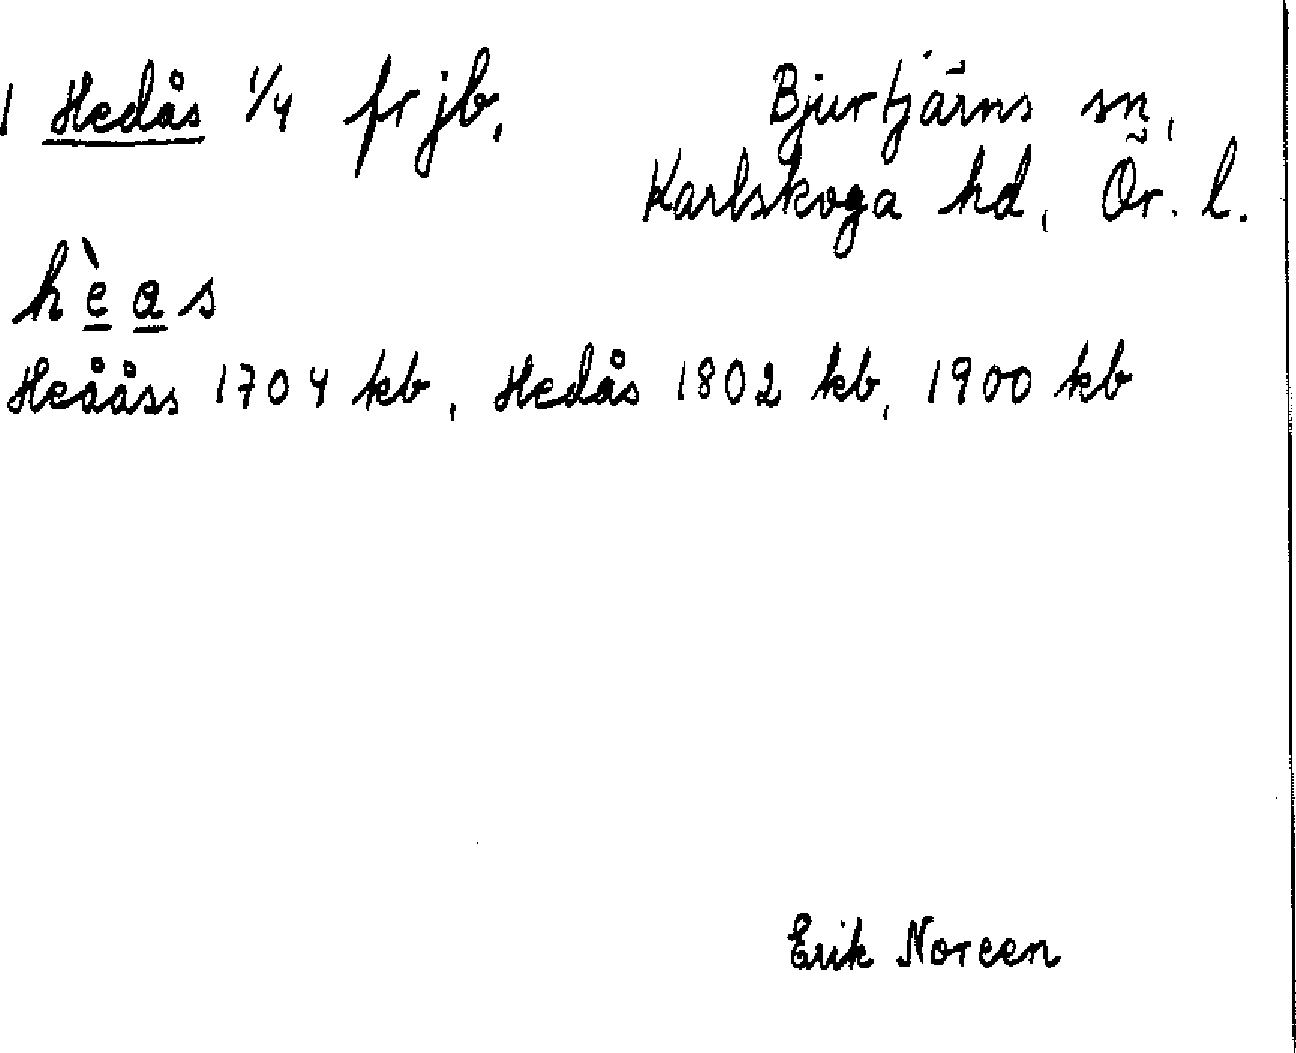 1 Hedås 1/4 fr jb,
Bjurtjärns sn,
Karlskoga hd, Ör. l.
hèas
Heååss 1704 kb, Hedås 1802 kb, 1900 kb
Erik Noreen